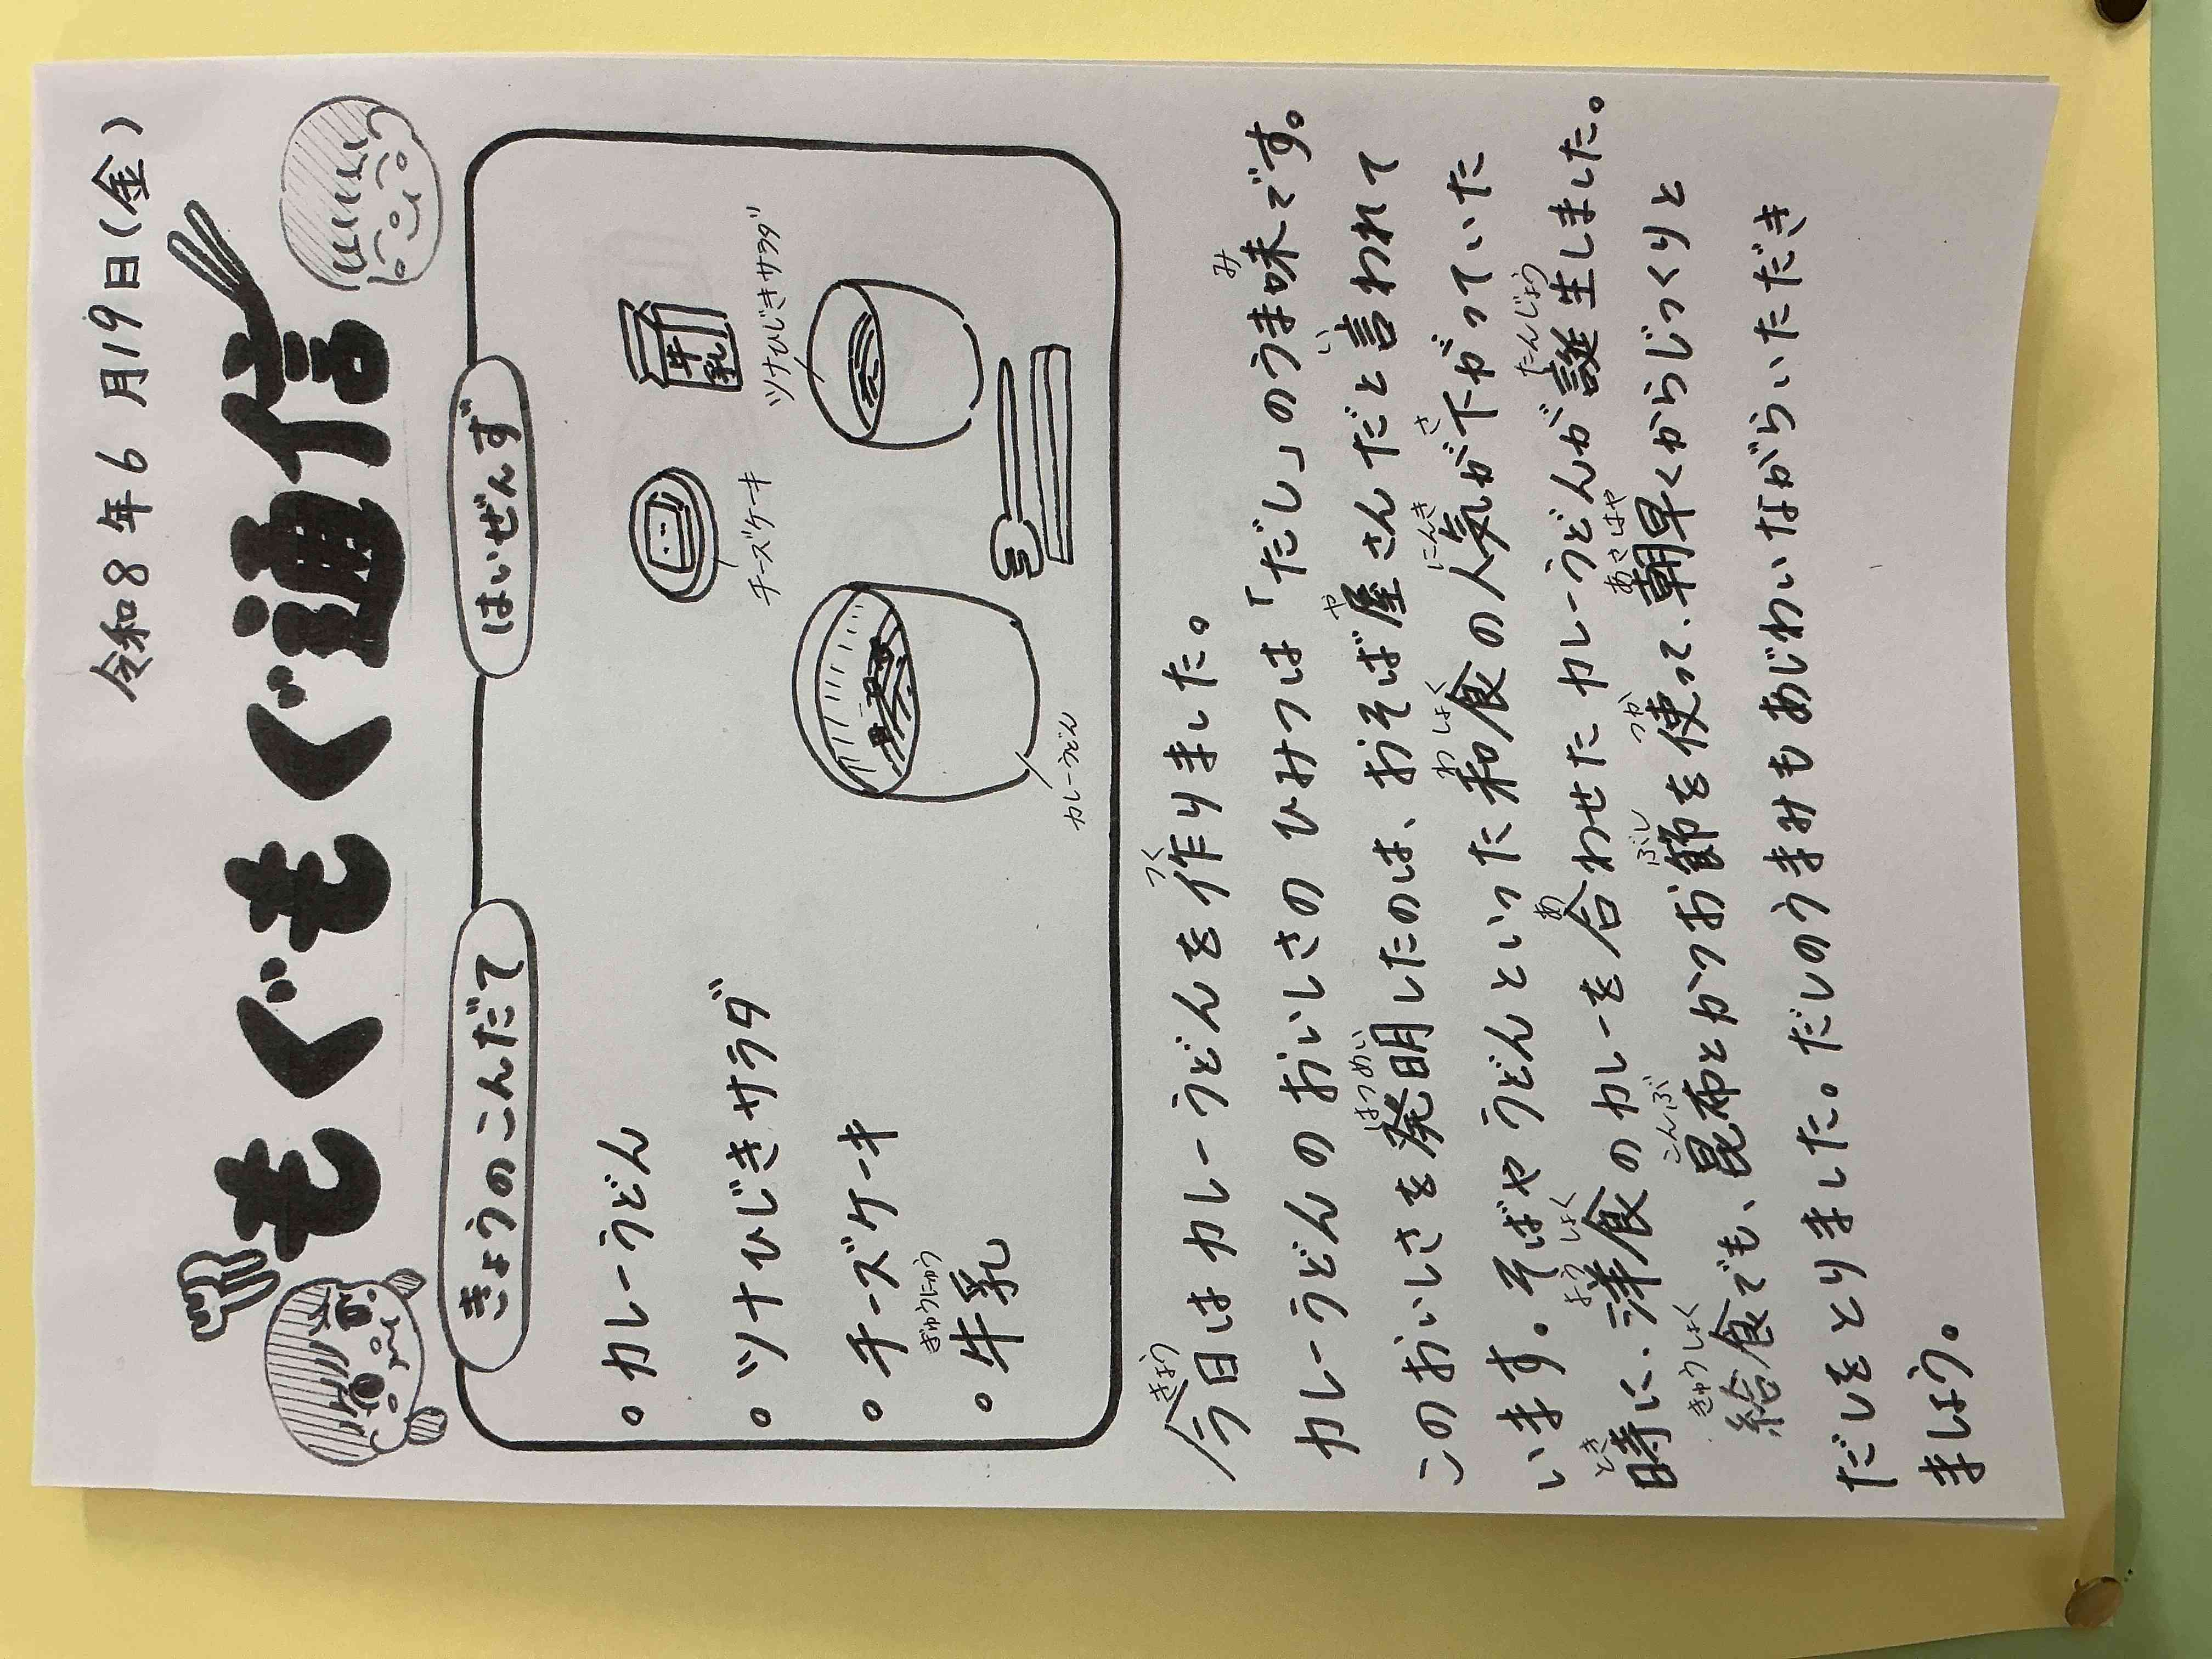 令和8年6月19日(金)
もぐもぐ通信
きょうのこんだて
・カレーうどん
・ツナひじきサラダ
・チーズケーキ
ぎゅうにゅう
・牛乳
はいぜんず
牛乳
チーズケーキ
ツナひじきサラダ
カレーうどん
きょう つく
今日はカレーうどんを作りました。
み
カレーうどんのおいしさのひみつは「だし」のうま味です。
はつめい や い
このおいしさを発明したのは、おそば屋さんだと言われて
わしょく にんき さ
います。そばやうどんといった和食の人気が下がっていた
とき ようしょく あ たんじょう
時に、洋食のカレーを合わせたカレーうどんが誕生しました。
きゅうしょく こんぶ ぶし つか あさはや
給食でも、昆布とかつお節を使って、朝早くからじっくりと
だしをとりました。だしのうまみもあじわいながらいただき
ましょう。